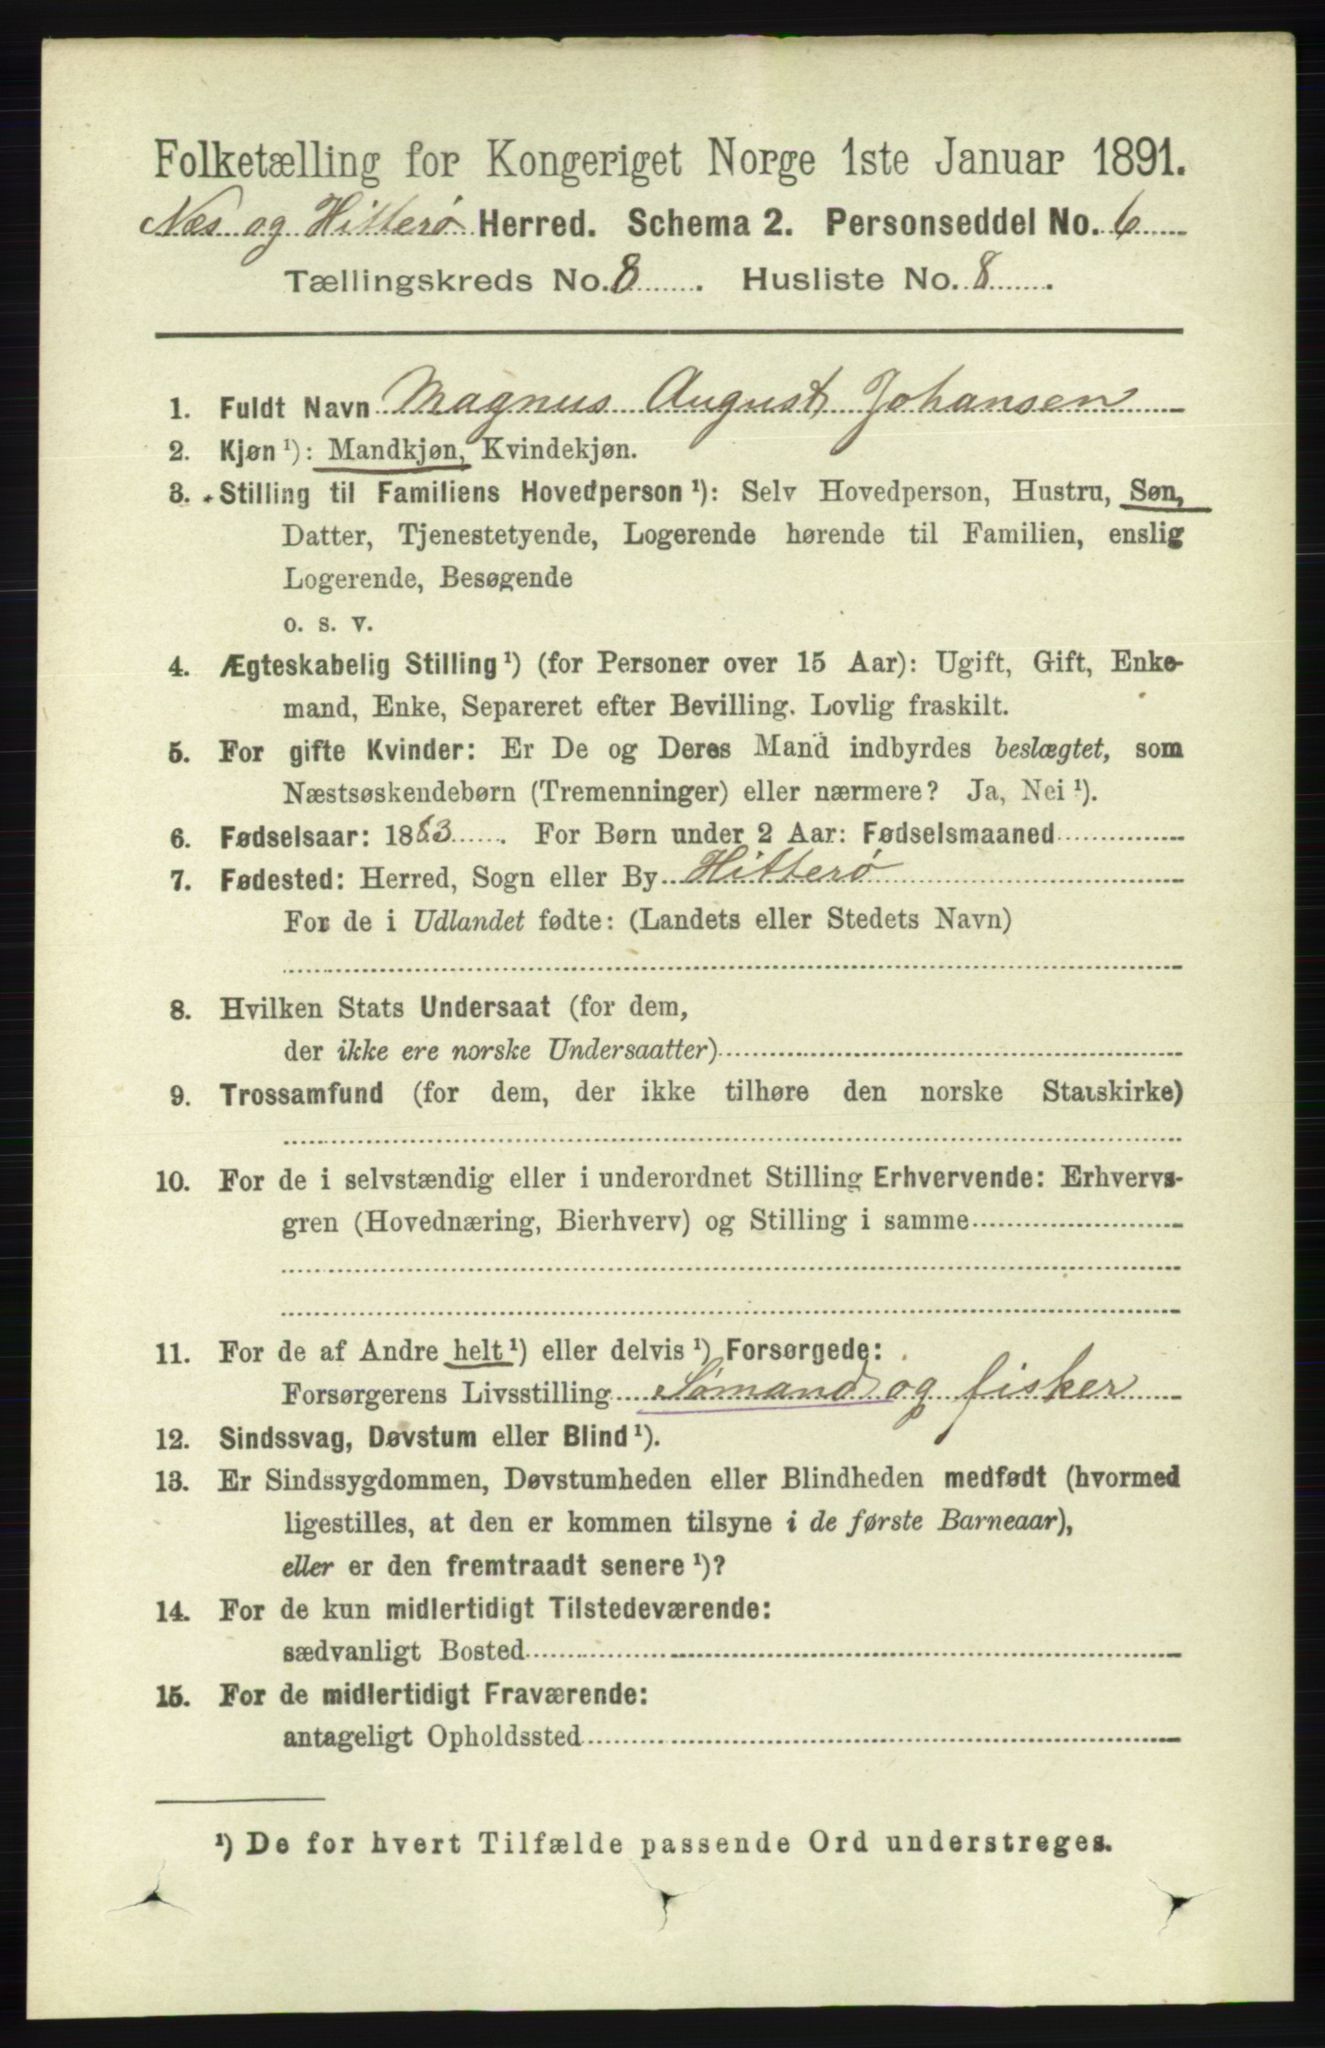 Folketælling for Kongeriget Norge 1ste Januar 1891.
Nes og Hitterø Herred. Schema 2. Personseddel No. 6
Tællingskreds No. 8. Husliste No. 8.
1. Fuldt Navn Magnus August Johansen
2. Kjøn¹): Mandkjøn, Kvindekjøn.
3. Stilling til Familiens Hovedperson¹): Selv Hovedperson, Hustru, Søn,
Datter, Tjenestetyende, Logerende hørende til Familien, enslig
Logerende, Besøgende
o. s. v.
4. Ægteskabelig Stilling¹) (for Personer over 15 Aar): Ugift, Gift, Enke-
mand, Enke, Separeret efter Bevilling. Lovlig fraskilt.
5. For gifte Kvinder: Er De og Deres Mand indbyrdes beslægtet, som
Næstsøskendebørn (Tremenninger) eller nærmere? Ja, Nei¹).
6. Fødselsaar: 1883. For Børn under 2 Aar: Fødselsmaaned
7. Fødested: Herred, Sogn eller By Hitterø
For de i Udlandet fødte: (Landets eller Stedets Navn)
8. Hvilken Stats Undersaat (for dem,
der ikke ere norske Undersaatter)
9. Trossamfund (for dem, der ikke tilhøre den norske Statskirke)
10. For de i selvstændig eller i underordnet Stilling Erhvervende: Erhvervs-
gren (Hovednæring, Bierhverv) og Stilling i samme
11. For de af Andre helt¹) eller delvis¹) Forsørgede:
Forsørgerens Livsstilling Sømand og fisker
12. Sindssvag, Døvstum eller Blind¹).
13. Er Sindssygdommen, Døvstumheden eller Blindheden medfødt (hvormed
ligestilles, at den er kommen tilsyne i de første Barneaar),
eller er den fremtraadt senere¹)?
14. For de kun midlertidigt Tilstedeværende:
sædvanligt Bosted
15. For de midlertidigt Fraværende:
antageligt Opholdssted
¹) De for hvert Tilfælde passende Ord understreges.